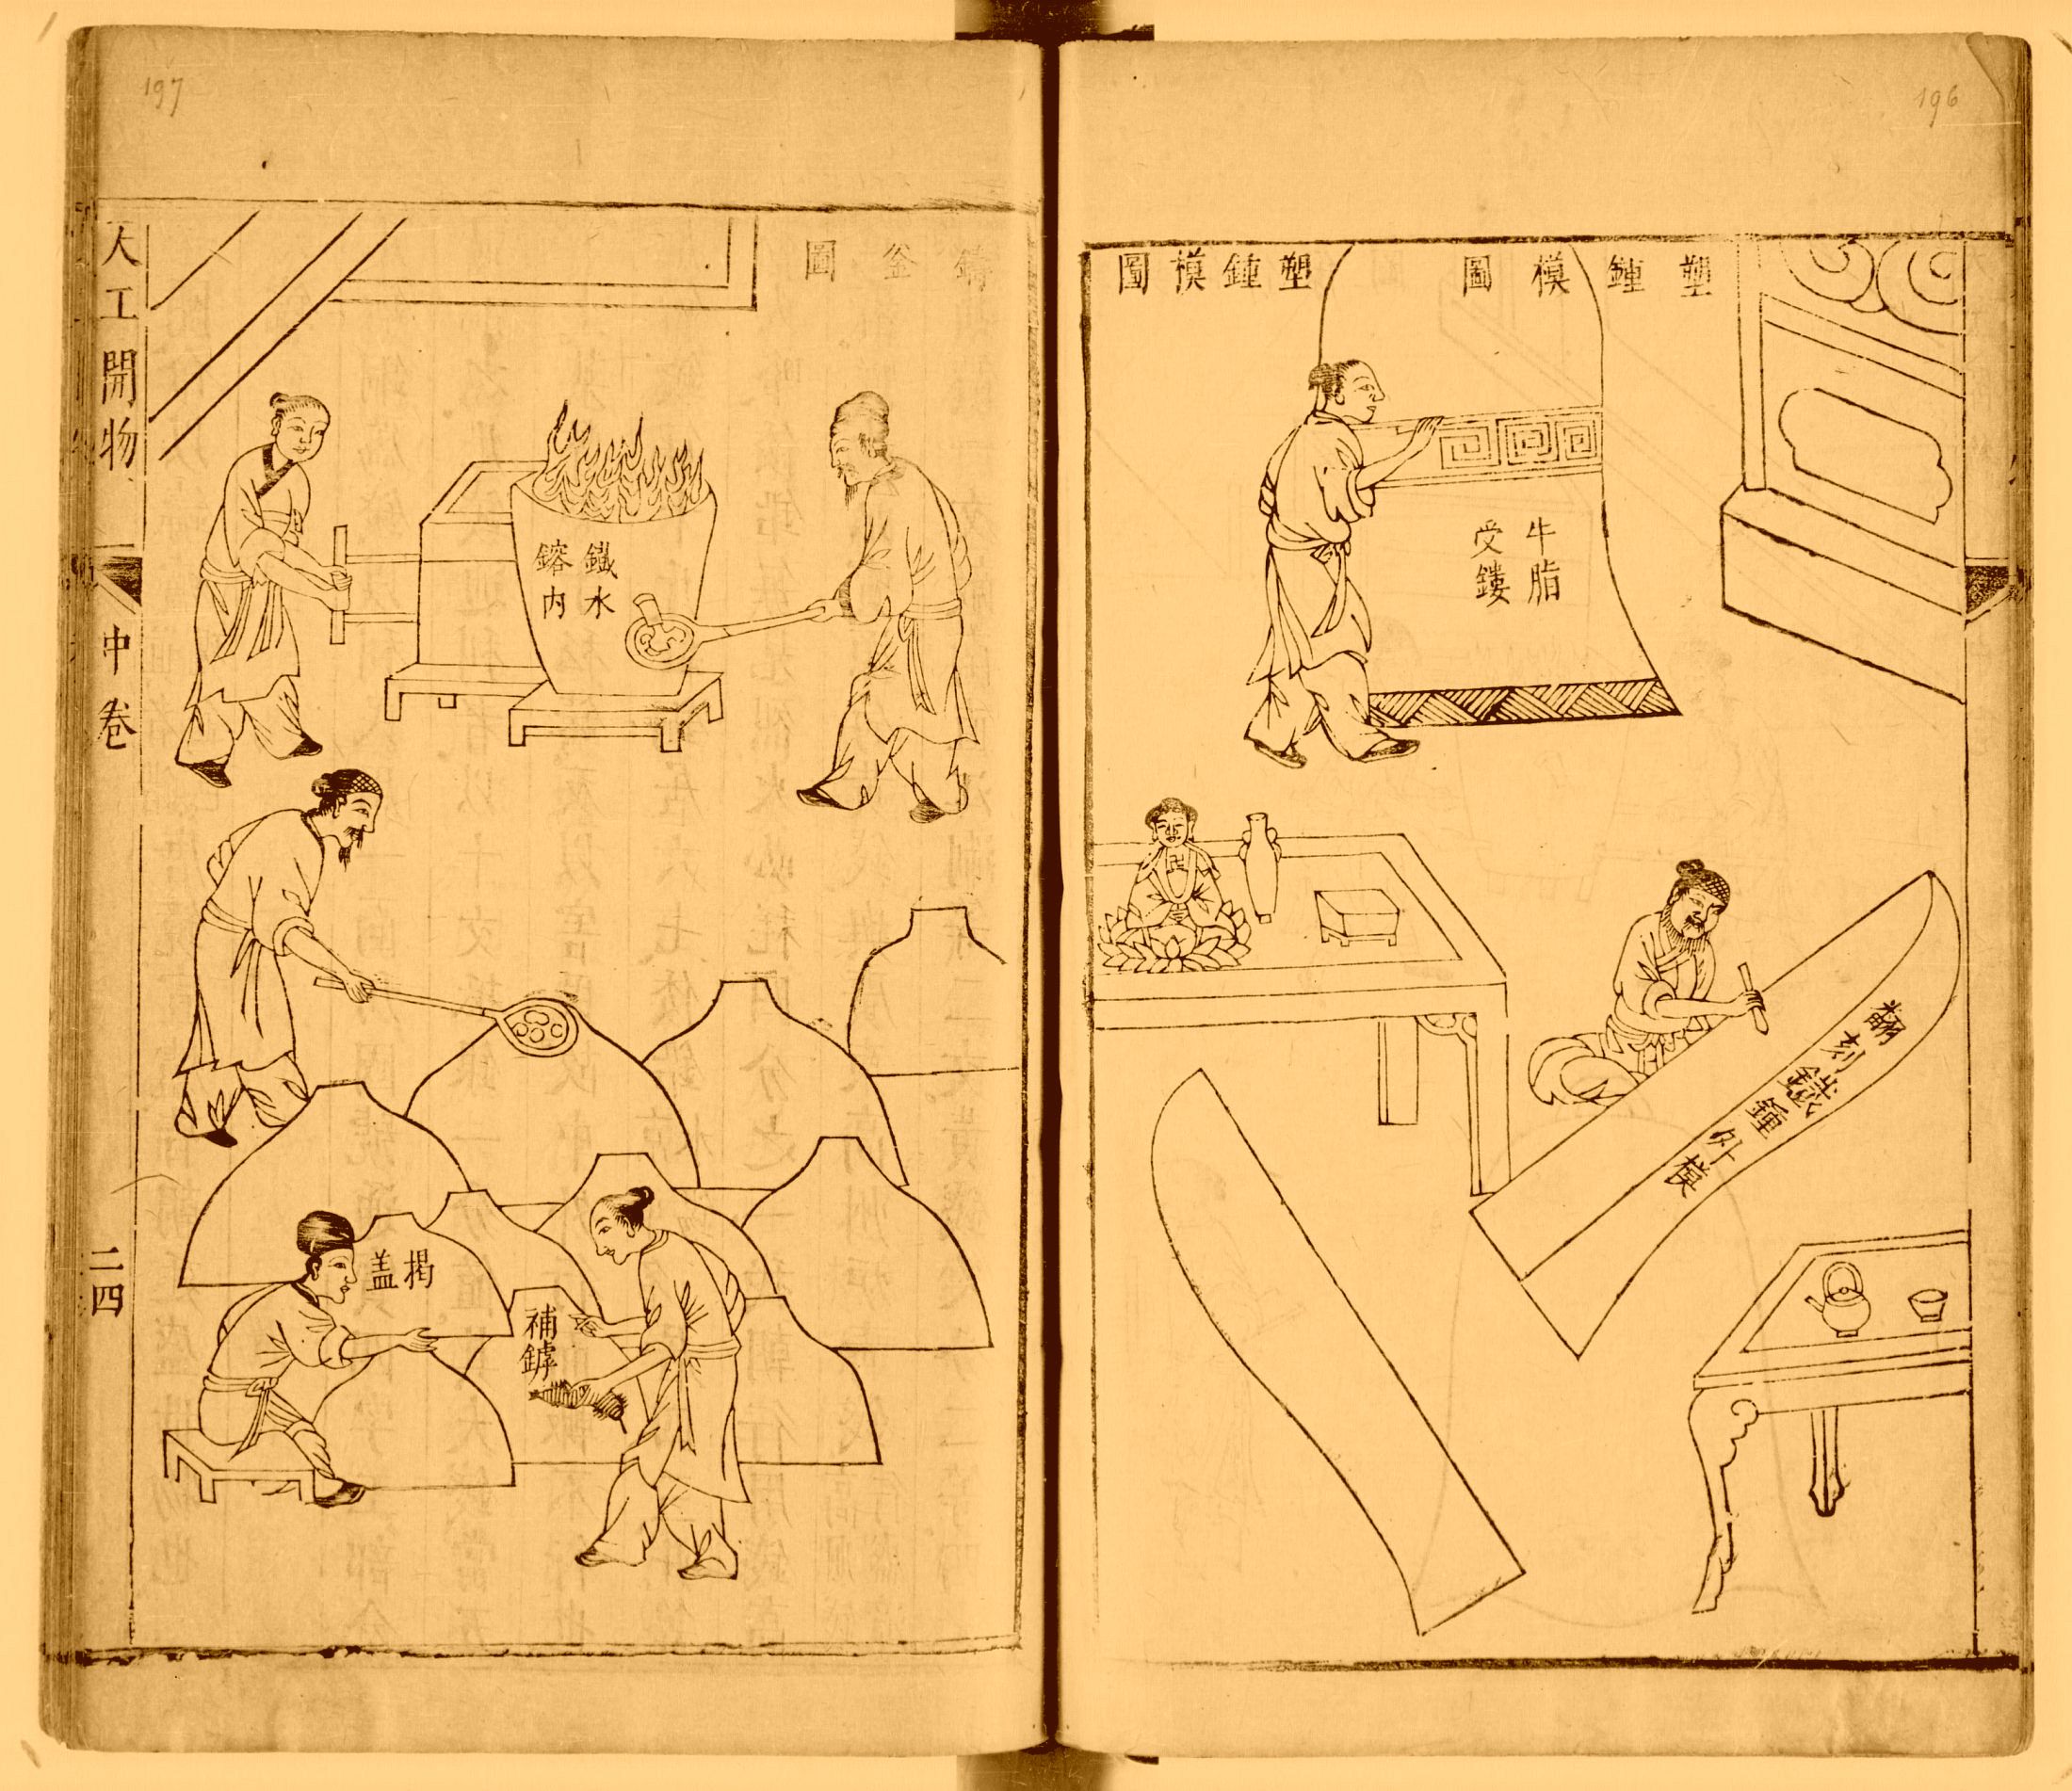 196
塑鍾模圖
塑鍾模圖
牛脂
受鏤
翻刻鐵鍾外模
197
鑄釜圖
鐵水
鎔内
揭
盖
補鎼
天工開物
中卷
二四